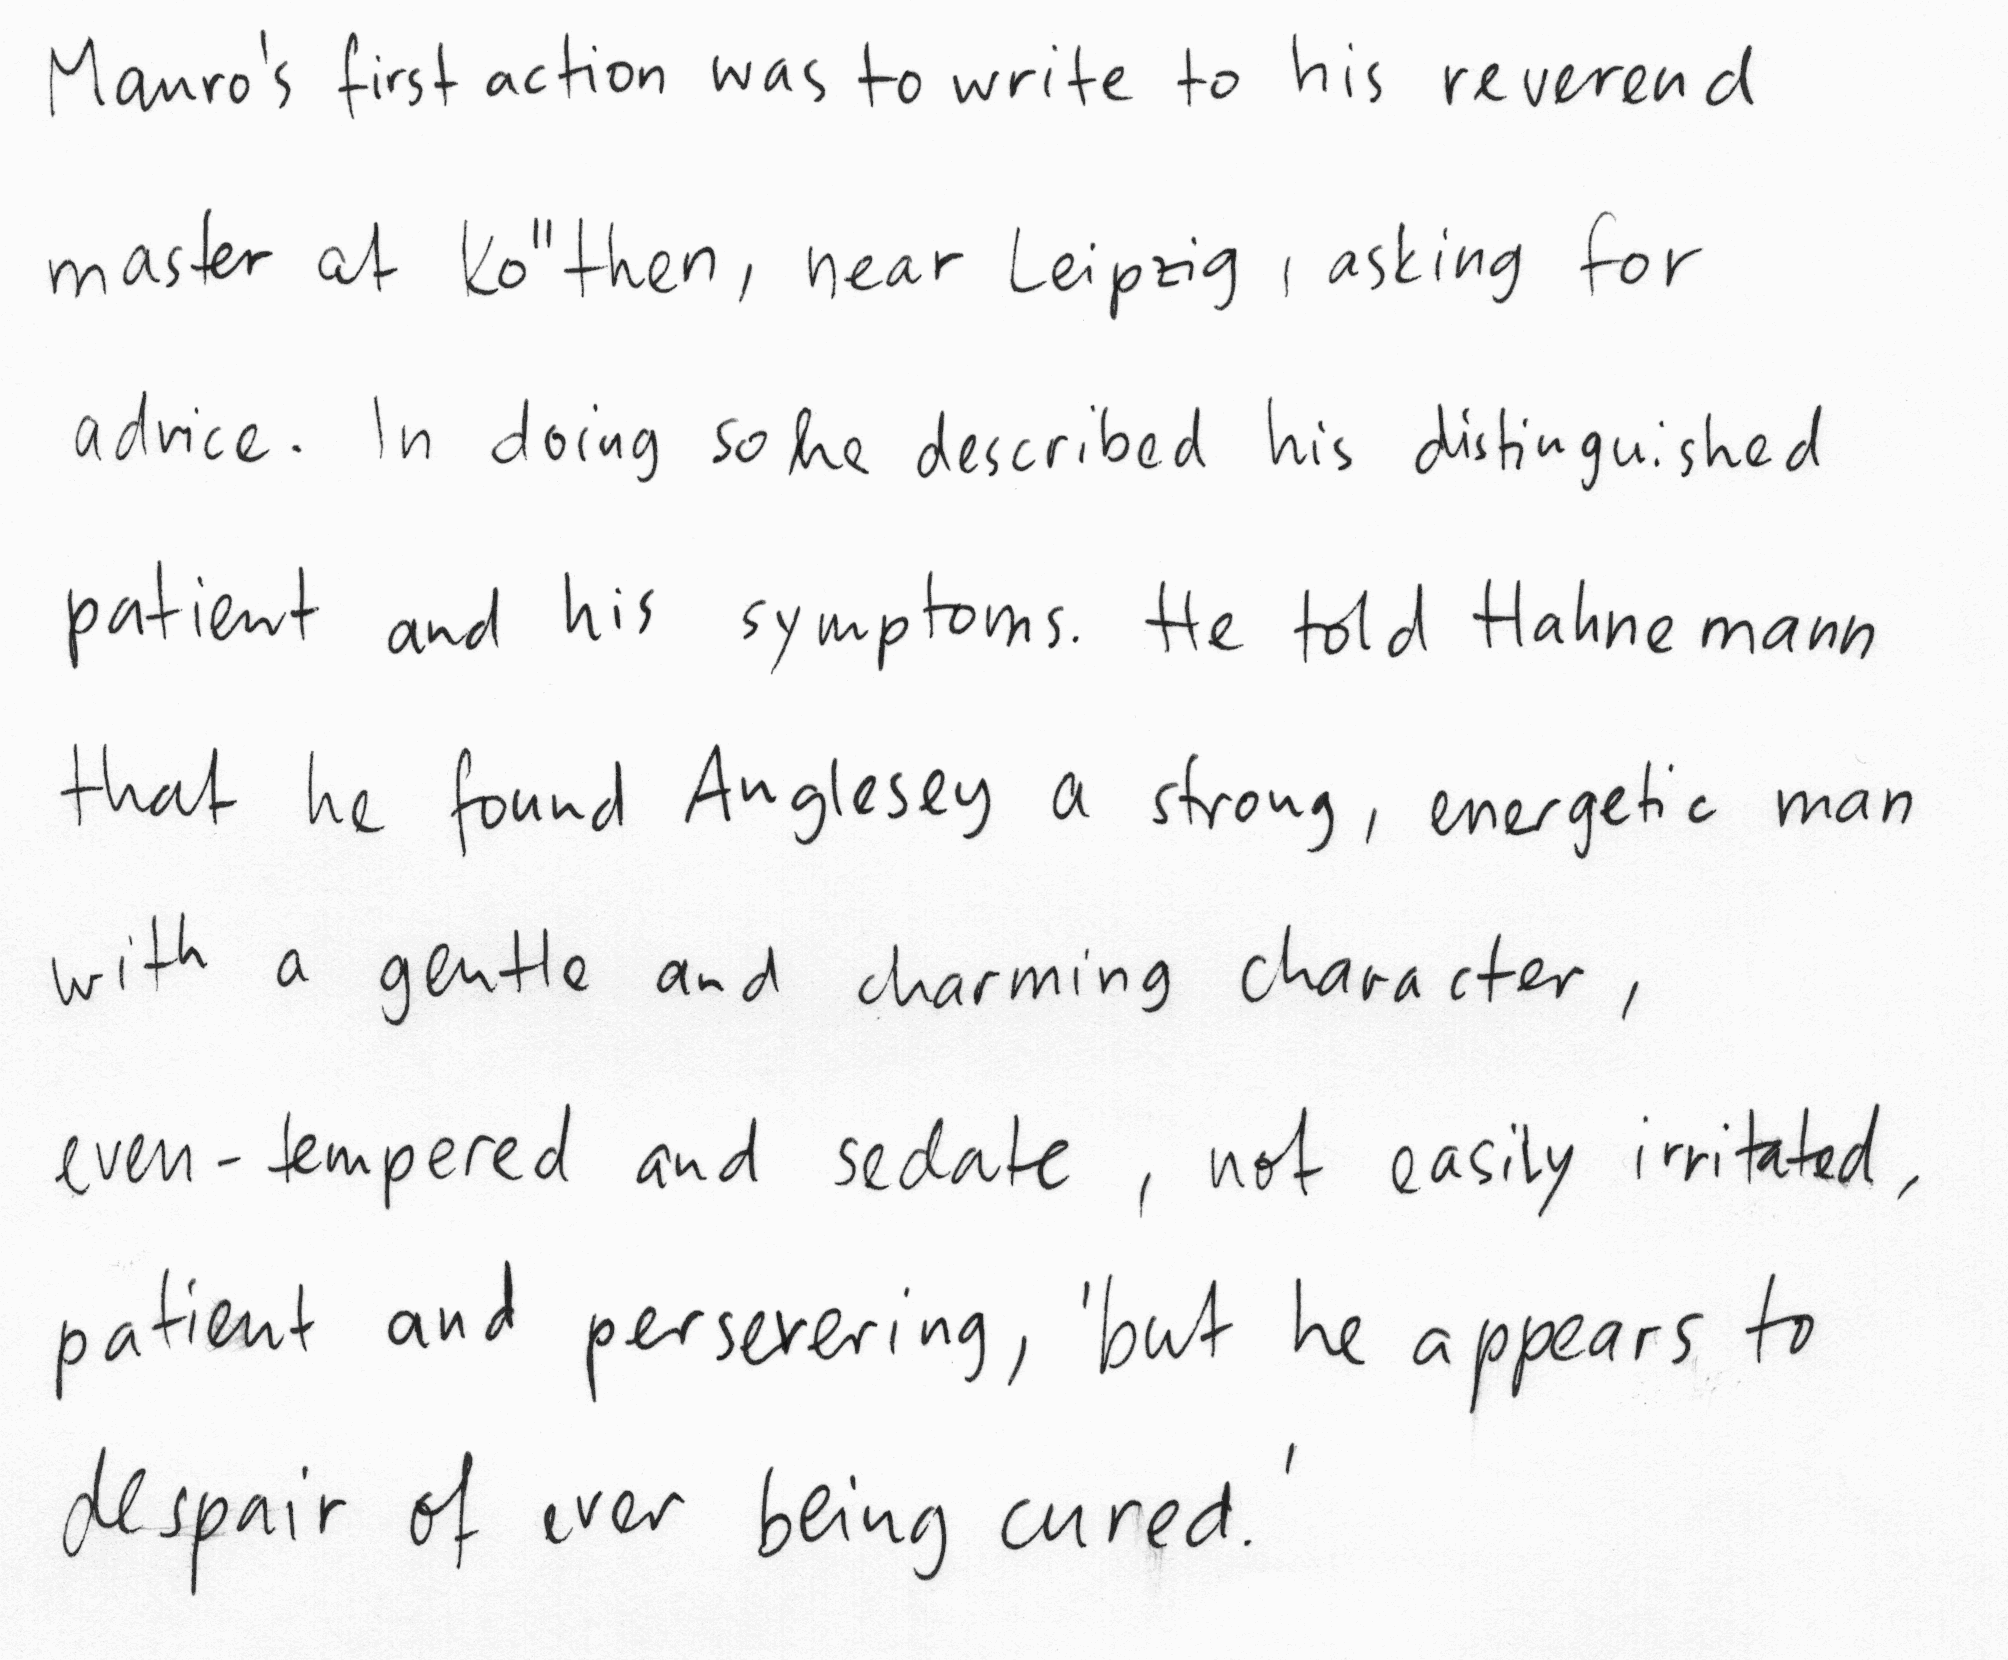 Mauro's first action was to write to his reverend
master at Ko"then, near Leipzig, asking for
advice. In doing so he described his distinguished
patient and his symptoms. He told Hahnemann
that he found Anglesey a strong, energetic man
with a gentle and charming character,
even-tempered and sedate, not easily irritated,
patient and persevering, 'but he appears to
despair of ever being cured.'